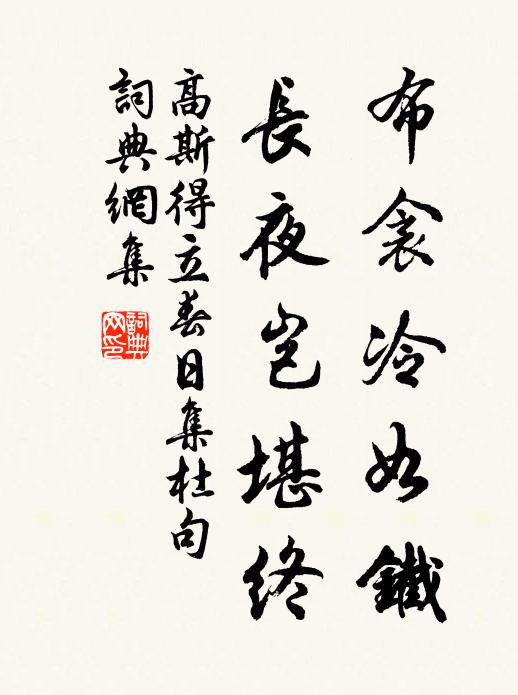 布衾冷如鐵
長夜豈堪終
高斯得立春日集杜句
詞典網集
詞典網印